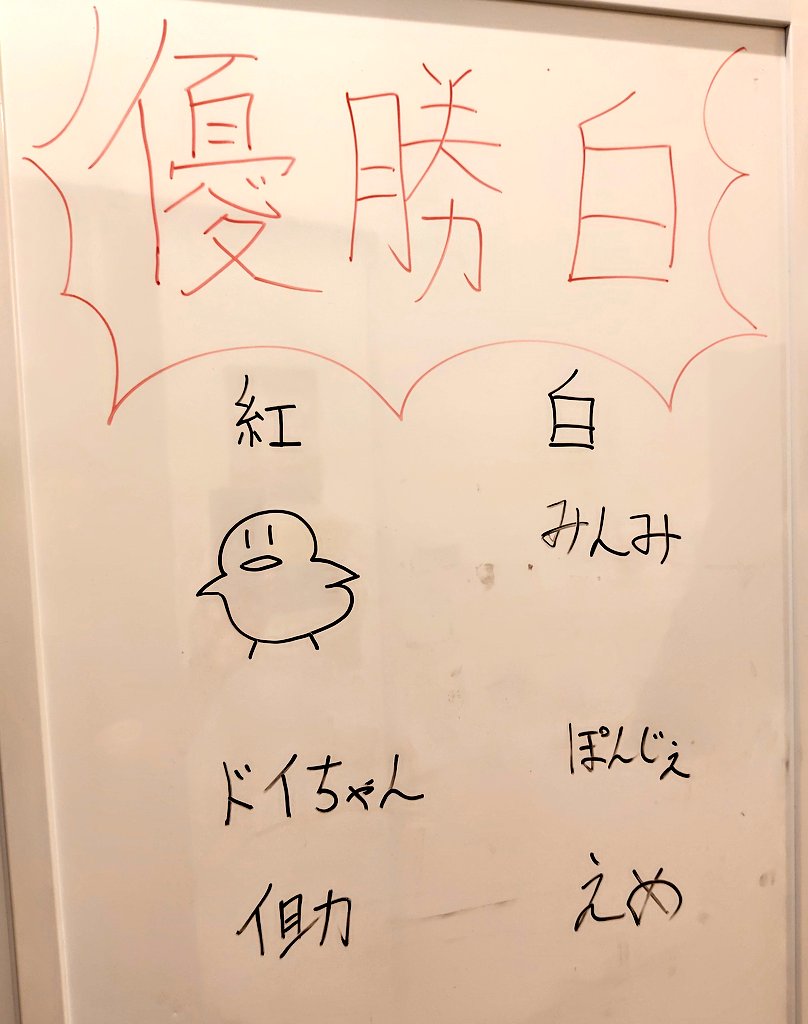 優勝 白
紅 白
みんみ
ドイちゃん ぽんじぇ
えめ